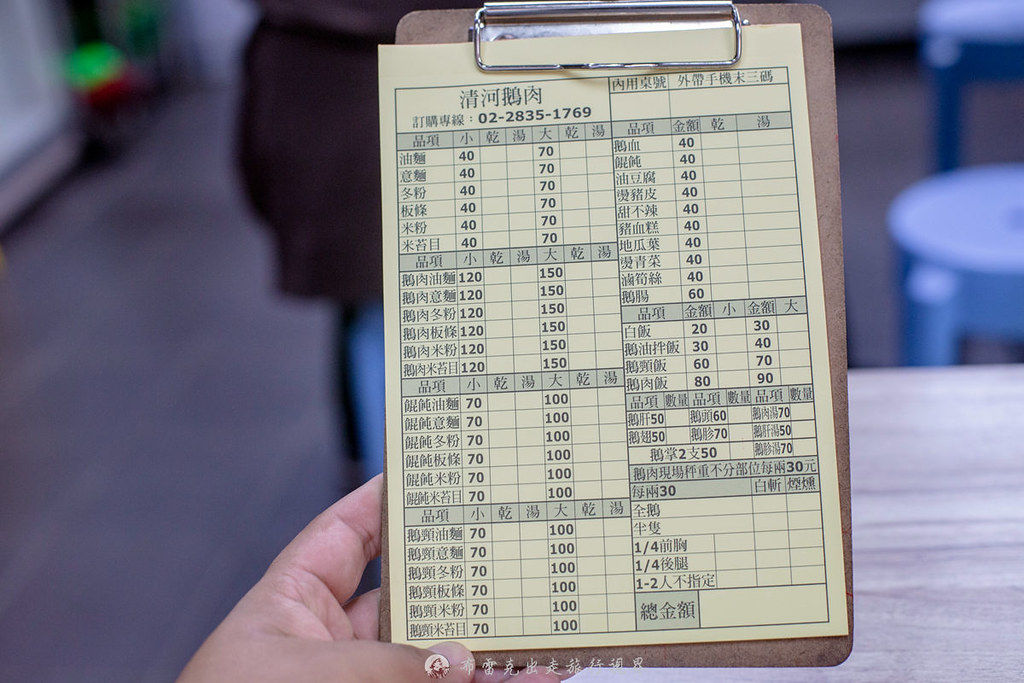 清河鵝肉
訂購專線：02-2835-1769
內用桌號 外帶手機末三碼
品項 小 乾 湯 大 乾 湯
油麵 40 70
意麵 40 70
冬粉 40 70
板條 40 70
米粉 40 70
米苔目 40 70
品項 小 乾 湯 大 乾 湯
鵝肉油麵 120 150
鵝肉意麵 120 150
鵝肉冬粉 120 150
鵝肉板條 120 150
鵝肉米粉 120 150
鵝肉米苔目 120 150
品項 小 乾 湯 大 乾 湯
餛飩油麵 70 100
餛飩意麵 70 100
餛飩冬粉 70 100
餛飩板條 70 100
餛飩米粉 70 100
餛飩米苔目 70 100
品項 小 乾 湯 大 乾 湯
鵝頸油麵 70 100
鵝頸意麵 70 100
鵝頸冬粉 70 100
鵝頸板條 70 100
鵝頸米粉 70 100
鵝頸米苔目 70 100
品項 金額 乾 湯
鵝血 40
餛飩 40
油豆腐 40
燙豬皮 40
甜不辣 40
豬血糕 40
地瓜葉 40
燙青菜 40
滷筍絲 40
鵝腸 60
品項 金額 小 金額 大
白飯 20 30
鵝油拌飯 30 40
鵝頸飯 60 70
鵝肉飯 80 90
品項 數量 品項 數量 品項 數量
鵝肝50 鵝頭60 鵝肉湯70
鵝翅50 鵝胗70 鵝肝湯50
鵝掌2支50 鵝胗湯70
鵝肉現場秤重不分部位每兩30元
每兩30 白斬 煙燻
全鵝
半隻
1/4前胸
1/4後腿
1-2人不指定
總金額
布雷克出走旅行視界